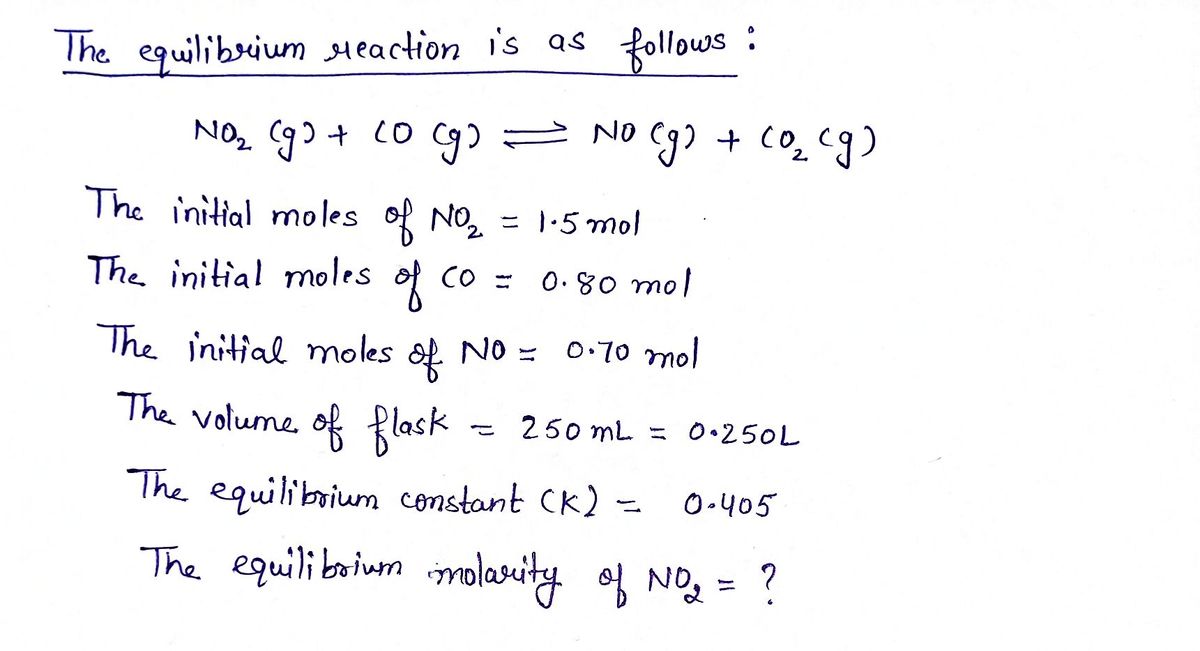 The equilibrium reaction is as follows :
NO₂ (g) + CO (g) ⇌ NO (g) + CO₂ (g)
The initial moles of NO₂ = 1.5 mol
The initial moles of CO = 0.80 mol
The initial moles of NO = 0.70 mol
The volume of flask = 250 mL = 0.250L
The equilibrium constant (K) = 0.405
The equilibrium molarity of NO₂ = ?